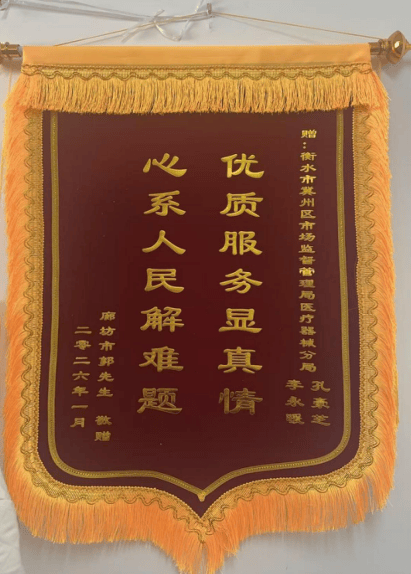 赠：衡水市冀州区市场监督管理局医疗器械分局
李永强
优质服务显真情
心系人民解难题
廊坊市郭先生 敬赠
二零二六年一月